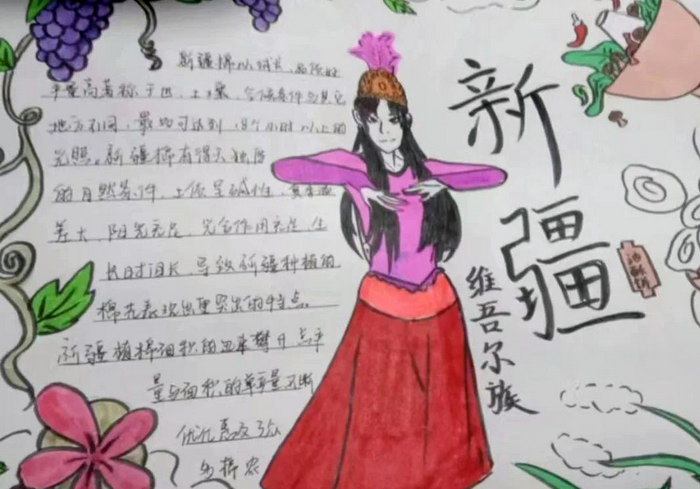 新疆棉以绒长、品质好
产量高著称于世。土壤，气候条件与其它
地方不同，最均可达到18个小时以上的
光照。新疆棉有得天独厚
的自然条件，土质呈碱性，夏季温
差大，阳光充足，光合作用充足，生
长时间长，导致新疆种植的
棉花表现出更突出的特点。
新疆植棉面积的
量与面积的单产量不断
优化
棉农
新疆
维吾尔族